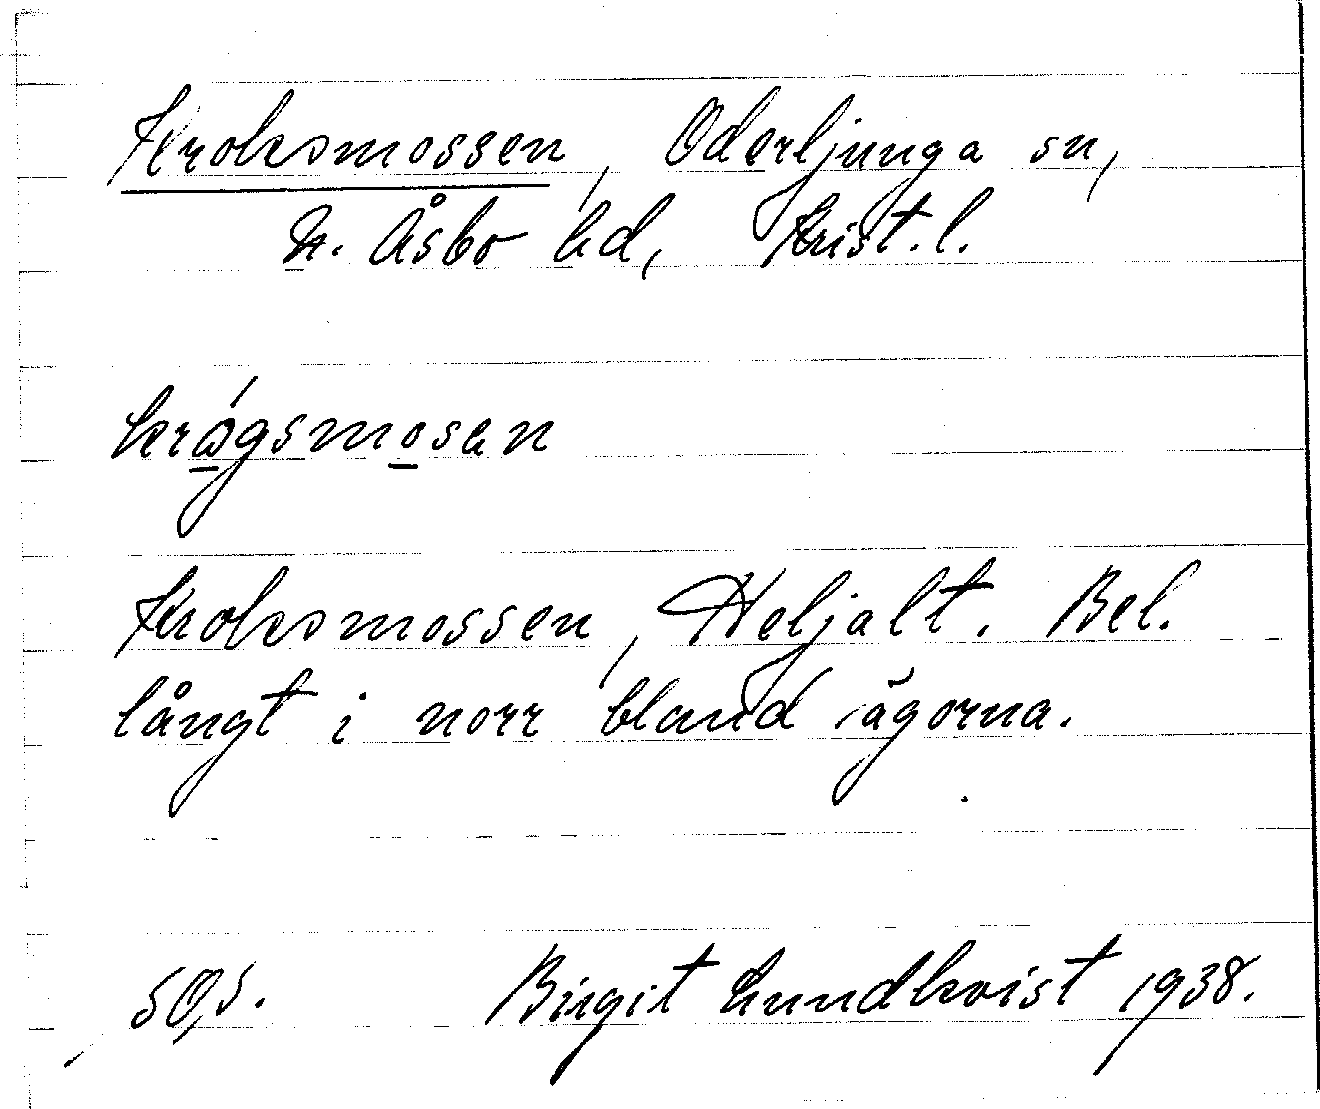 Kroksmossen, Oderljunga sn,
N. Åsbo hd, Krist. l.
krågsmosen
Kroksmossen, Heljalt. Bel.
långt i norr bland ägorna.
Birgit Lundkvist 1938.